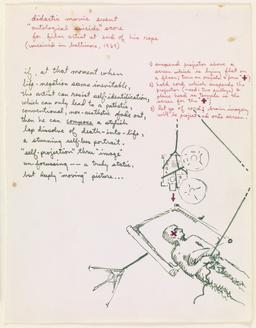 didactic movie event
"ontological suicide" score
for film artist at end of his rope
(conceived in baltimore, 1969)
if, at that moment when
life-negation seems inevitable,
the artist can resist self-identification,
which can only lead to a pathetic,
conventional, non-aesthetic fade out,
then he can compose a stylish
lap dissolve of death-into-life,
a stunning self/less portrait.
"self-projection" thru image
un-focussing — a truly static,
but deeply "moving" picture...
1) suspend projector above a
screen which is lying flat on
a floor; focus an original
2) hold cord which suspends the
projector
place head
screen for the
3) let go of cord; brain imagery
will be projected onto screen.